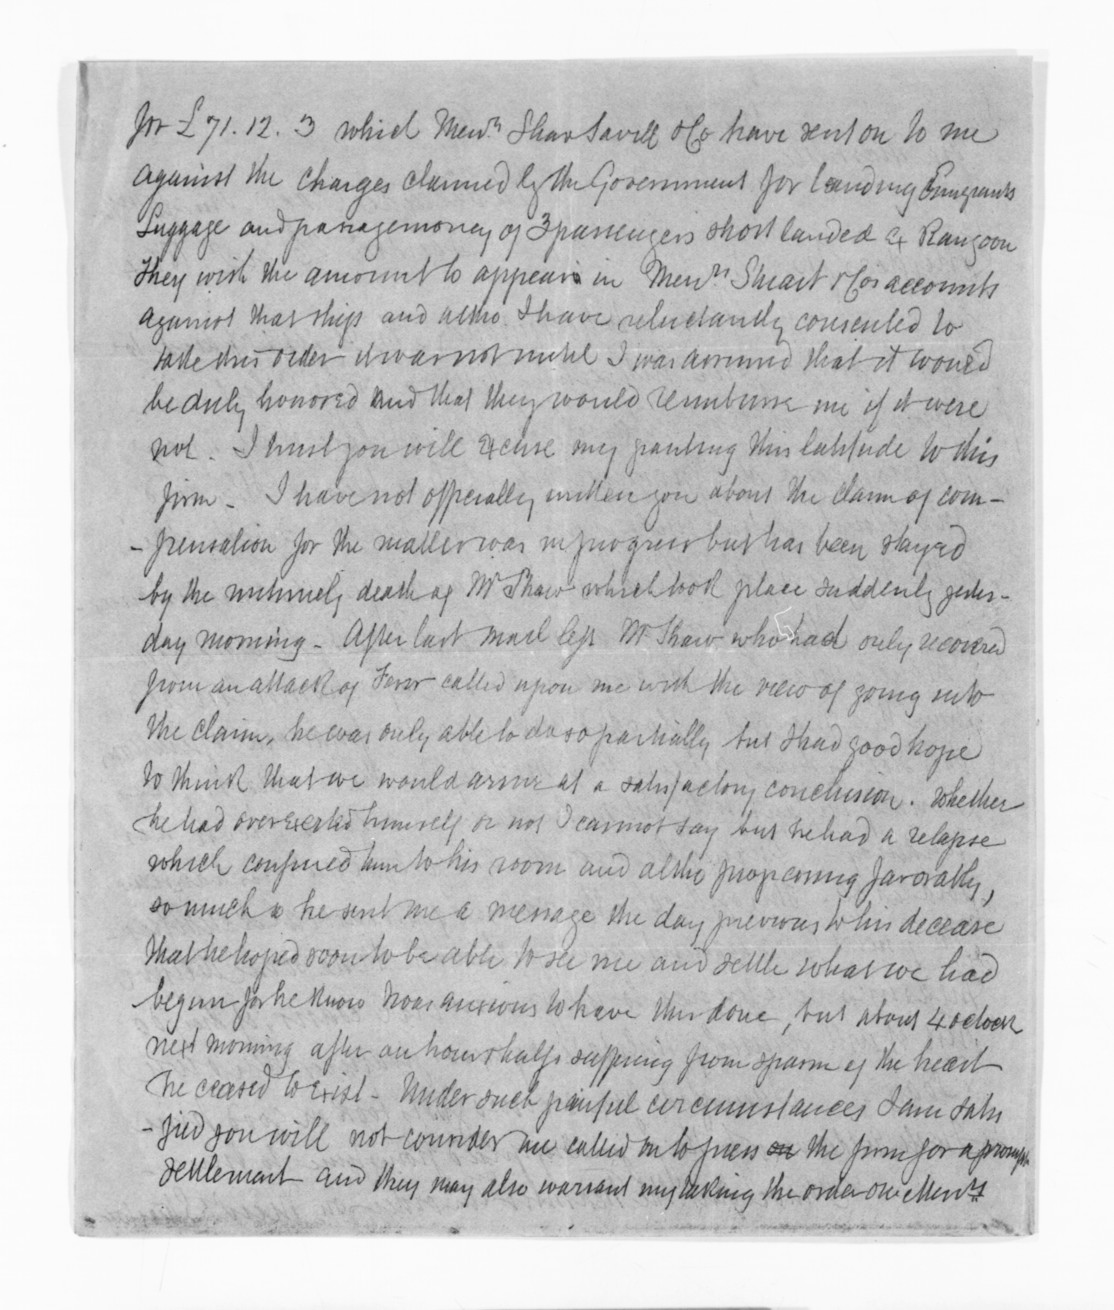 for £71.12.3 which Messrs Shaw Savill & Co have sent on to me
against the charges claimed by the Government for landing Emigrants
Luggage and passage money of 3 passengers short landed ex Rangoon
They wish the amount to appear in Messrs Stuart & Cos accounts
against that ship and altho I have reluctantly consented to
take this order it was not until I was assured that it would
be duly honored and that they would reimburse me if it were
not. I trust you will excuse my granting this latitude to this
firm - I have not officially written you about the claim of com-
-pensation for the matter was in progress but has been stayed
by the untimely death of Mr Shaw which took place suddenly yester-
day morning - After last mail left Mr Shaw who had only recovered
from an attack of Fever called upon me with the view of going into
the claim, he was only able to do so partially but I had good hope
to think that we would arrive at a satisfactory conclusion. Whether
he had overexerted himself or not I cannot say but he had a relapse
which confined him to his room and altho progressing favorably,
so much so he sent me a message the day previous to his decease
that he hoped soon to be able to see me and settle what we had
begun for he knew I was anxious to have this done, but about 4 oclock
next morning after an hour & halfs suffering from spasm of the heart
he ceased to exist - Under such painful circumstances I am satis
-fied you will not consider me called on to press on the firm for a prompt
settlement and they may also warrant my taking the order on Messrs